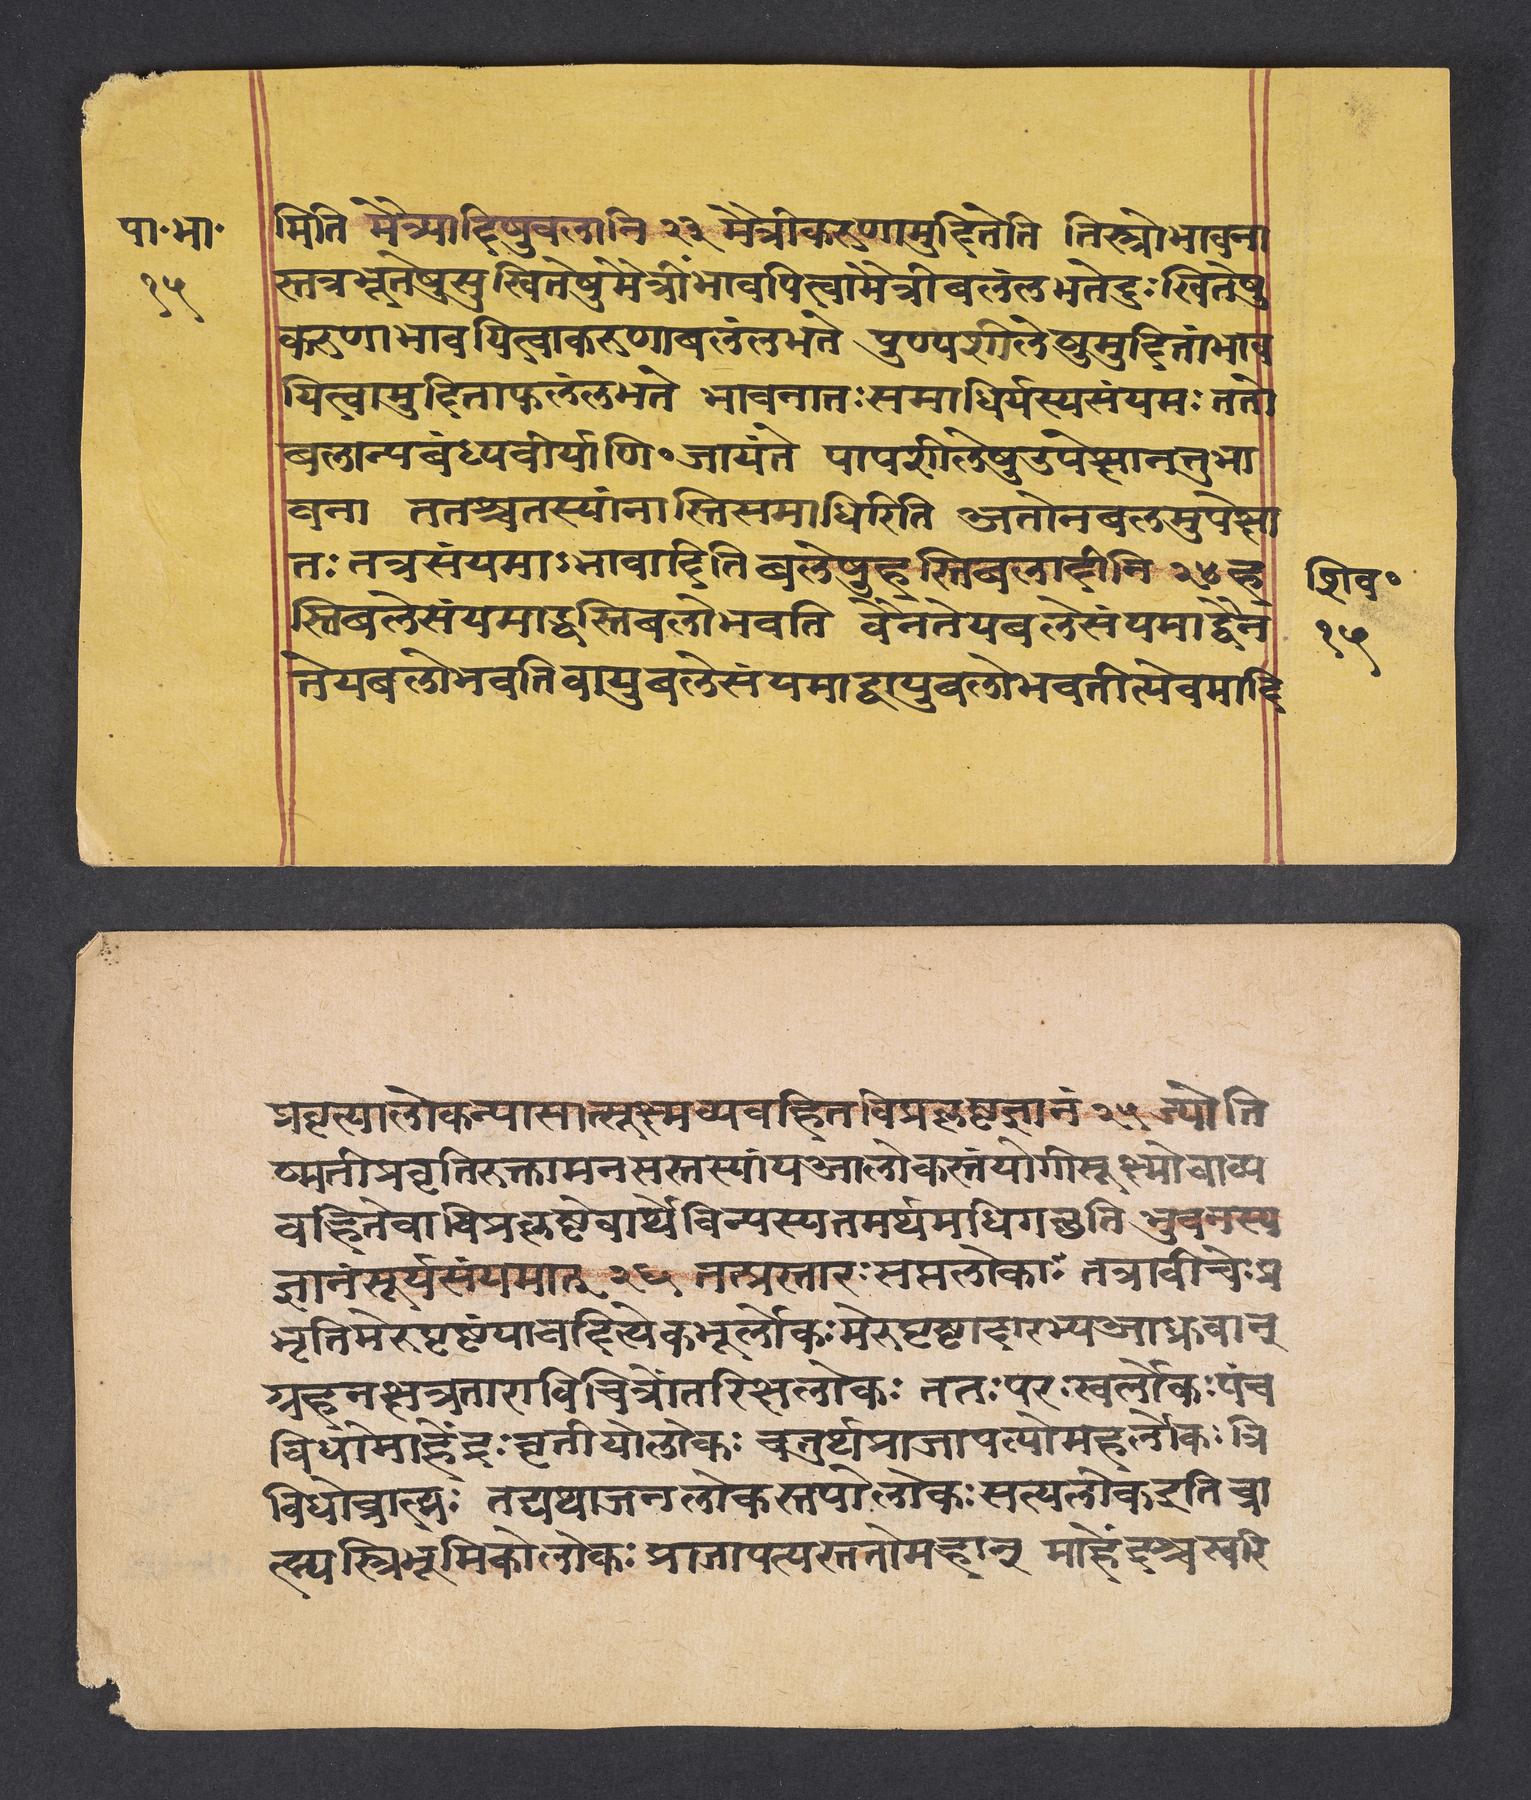 पाःभाः
१५
मिति मैत्र्यादिषुबलानि २३ मैत्रीकरुणामुदितेति तिस्त्रोभावना
स्तत्रभूतेषुसुखितेषुमैत्रींभावयित्वामैत्रीबलंलभतेदुःखितेषु
करुणाभावयित्वाकरुणाबलंलभते पुण्यशीलेषुमुदितांभाव
यित्वामुदिताफलंलभते भावनातःसमाधिर्यस्यसंयमः ततो
बलान्यबंध्यवीर्याणि॰जायंते पापशीलेषुउपेक्षानतुभा
वना ततश्चतस्यांनास्तिसमाधिरिति अतोनबलमुपेक्षा
तः तत्रसंयमाऽभावादिति बलेषुहस्तिबलादीनि २४ ह
स्तिबलेसंयमाद्धस्तिबलोभवति वैनतेयबलेसंयमाद्वैन
तेयबलोभवतिवायुबलेसंयमाद्वायुबलोभवतीत्येवमादि
शिव॰
१५
प्रवृत्यालोकन्यासात्सूक्ष्मव्यवहितविप्रकृष्टज्ञानं २५ ज्योति
ष्मतीप्रवृतिरुक्तामनसस्तस्यांयआलोकस्तंयोगीसूक्ष्मोवाव्य
वहितेवाविप्रकृष्टेवार्थेविन्यस्यतमर्थमधिगच्छति भुवनस्य
ज्ञानंसूर्यसंयमात् २६ तत्प्रस्तारःसप्तलोकाः तत्रावीचेःप्र
भृतिमेरुपृष्टंयावदित्येकभूर्लोकःमेरुपृष्टादारभ्यआध्रुवान्
ग्रहनक्षत्रताराविचित्रोंतरिक्षलोकः ततःपरःस्वर्लोकःपंच
विधोमाहेंद्रःतृतीयोलोकः चतुर्थप्राजापत्योमहर्लोकःत्रि
विधोब्राह्मः तद्यथाजनलोकस्तपोलोकःसत्यलोकइतिब्रा
ह्म्यस्त्रिभूमिकोलोकः प्राजापत्यस्ततोमहान् माहेंद्रश्चस्वरि